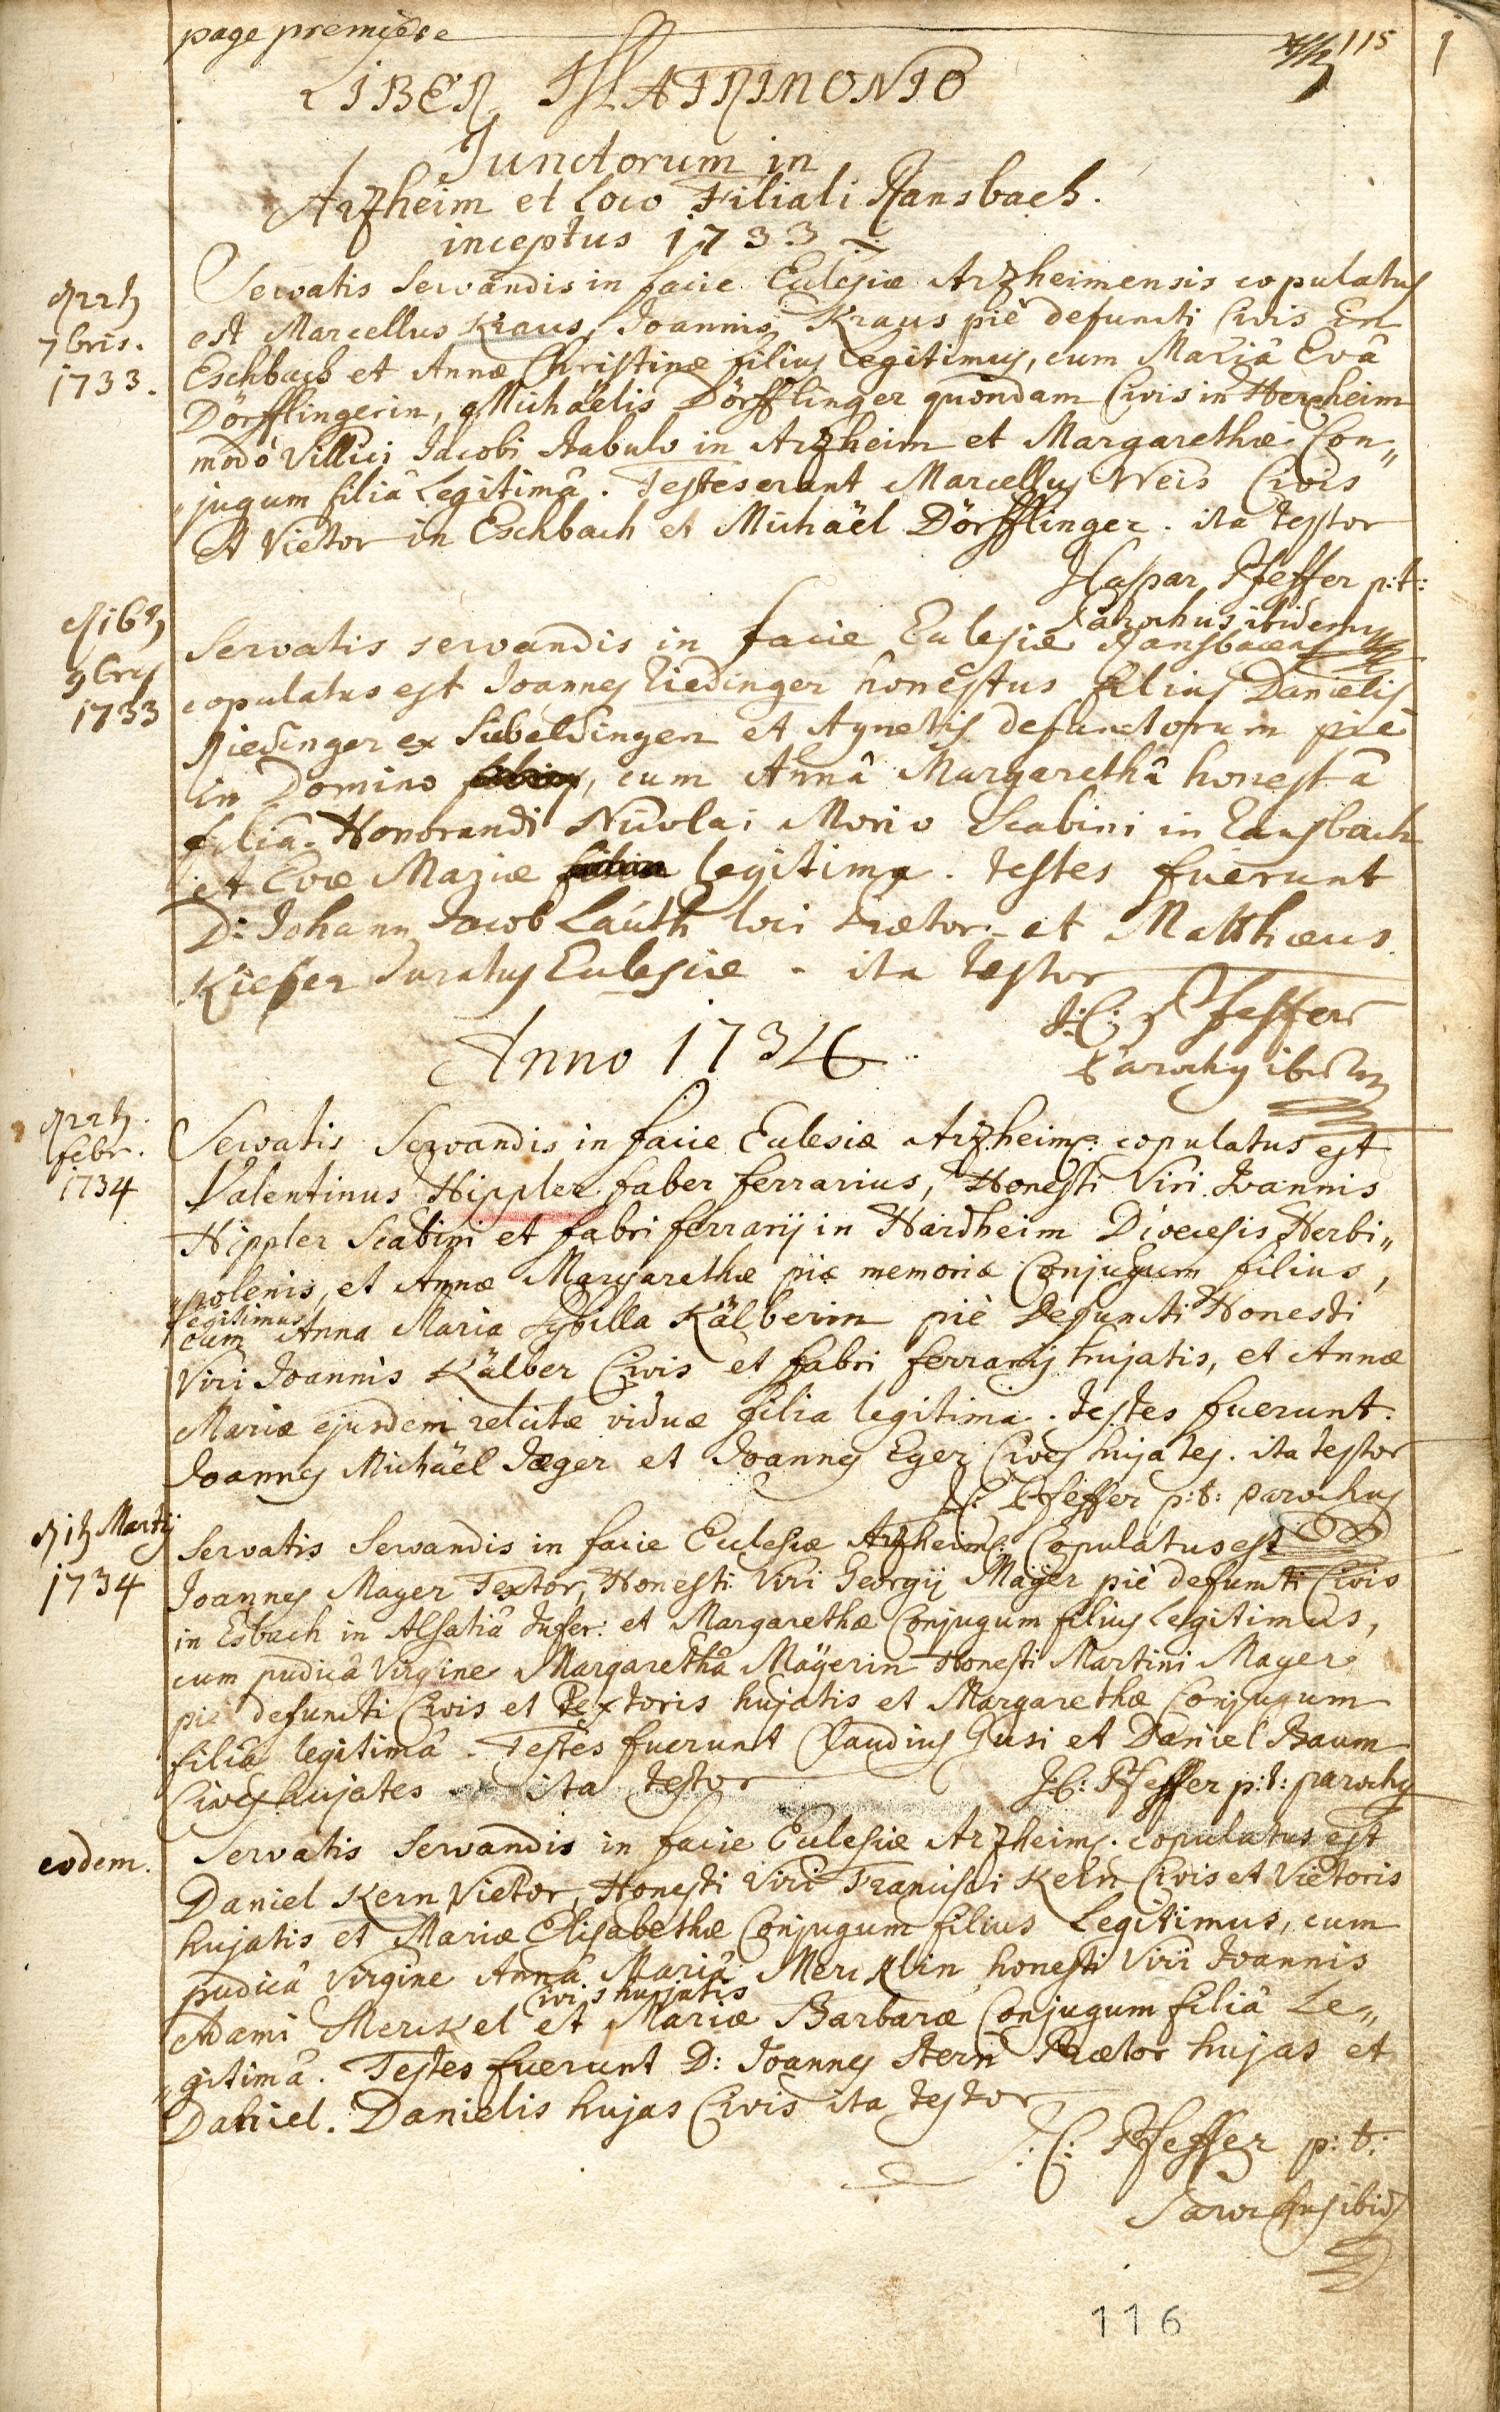 page premiere 115 1
LIBER MATRIMONIO
Junctorum in
Arzheim et Loco Filiali Ransbach.
inceptus 1733
d 22ten
7bris.
1733.
Servatis Servandis in facie Eclesiæ Arzheimensis copulatus
est Marcellus Kraus, Joannis Kraus piè defuncti Civis in
Eschbach et Annæ Christinæ filius Legitimus, cum Mariâ Evâ
Dörfflingerin, Michäelis Dörfflinger quondam Civis in Herxheim
modò Villici Jacobi Stabulo in Arzheim et Margarethæ Con„
„jugum filiâ Legitimâ. Testes erant Marcellus Weis Civis
et Vietor in Eschbach et Michäel Dörfflinger. ita testor
J Caspar Pfeffer p:t:
Parochus ibidem
d 16t
9bris
1733
Servatis servandis in facie Eclesiæ Ransbacens
copulatus est Joannes Riedinger honestus filius Danielis
Riedinger ex Siebeldingen et Agnetis defunctorum piè
in Domino, cum Annâ Margarethâ honestâ
filiâ Honorandi Nicolai Morio Scabini in Ransbach
et Evæ Mariæ legitima. testes fuerunt
D: Johann Jacob Lauth loci Prætor et Matthæus
Kieffer Juratus Eclesiæ. ita testor
J:C: Pfeffer
Parochus ibidem
Anno 1734
d 22t.
febr.
1734
Servatis Servandis in facie Eclesiæ Arzheims: copulatus est
Valentinus Hippler faber ferrarius, Honesti Viri Joannis
Hippler Scabini et fabri ferrarij in Hardheim Diœcesis Herbi„
„polenis, et Annæ Margarethæ piæ memoriæ Conjugum filius,
legitimus
cum Anna Maria Sybilla Kälberin piè Defuncti Honesti
Viri Joannis Kälber Civis et fabri ferrarij hujatis, et Annæ
Mariæ ejusdem relictæ viduæ filia legitima. testes fuerunt
Joannes Michäel Jæger et Joannes Eger Cives hujates. ita testor
J C: Pfeffer p:t: parochus
d 1t Martij
1734
Servatis Servandis in facie Eclesiæ Arzheims: Copulatus est
Joannes Mayer Textor, Honesti Viri Georgij Mayer piè defuncti Civis
in Esbach in Alsatiâ Infer: et Margarethæ Conjugum filius Legitimus,
cum pudicâ Virgine Margarethâ Mayerin Honesti Martini Mayer
piè defuncti Civis et Textoris hujatis et Margarethæ Conjugum
filiâ legitimâ. Testes fuerunt Claudius Gusi et Daniel Baum
Cives hujates ita testor
J C: Pfeffer p:t: parochus
eodem.
Servatis Servandis in facie Eclesiæ Arzheims. copulatus est
Daniel Kern Vietor, Honesti Viri Francisci Kern Civis et Vietoris
hujatis et Mariæ Elisabethæ Conjugum filius Legitimus, cum
pudicâ Virgine Annâ Mariâ Mercklin honesti Viri Joannis
Civis hujatis
Adami Merckel et Mariæ Barbaræ Conjugum filiâ Le„
„gitimâ. Testes fuerunt D: Joannes Stern Prætor hujas et
Daniel. Danielis hujas Civis ita testor
J: C: Pfeffer p: t:
Parochus ibid
116